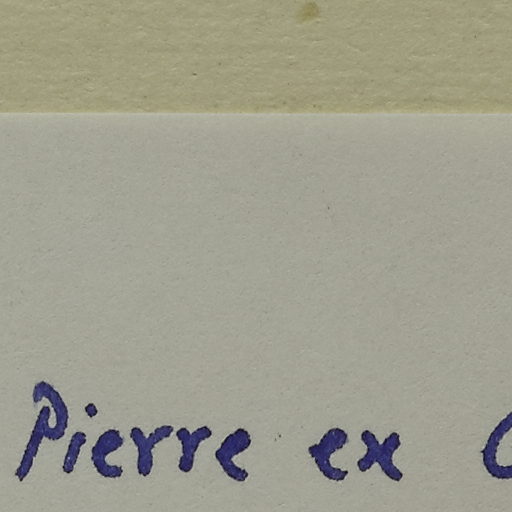 Pierre ex